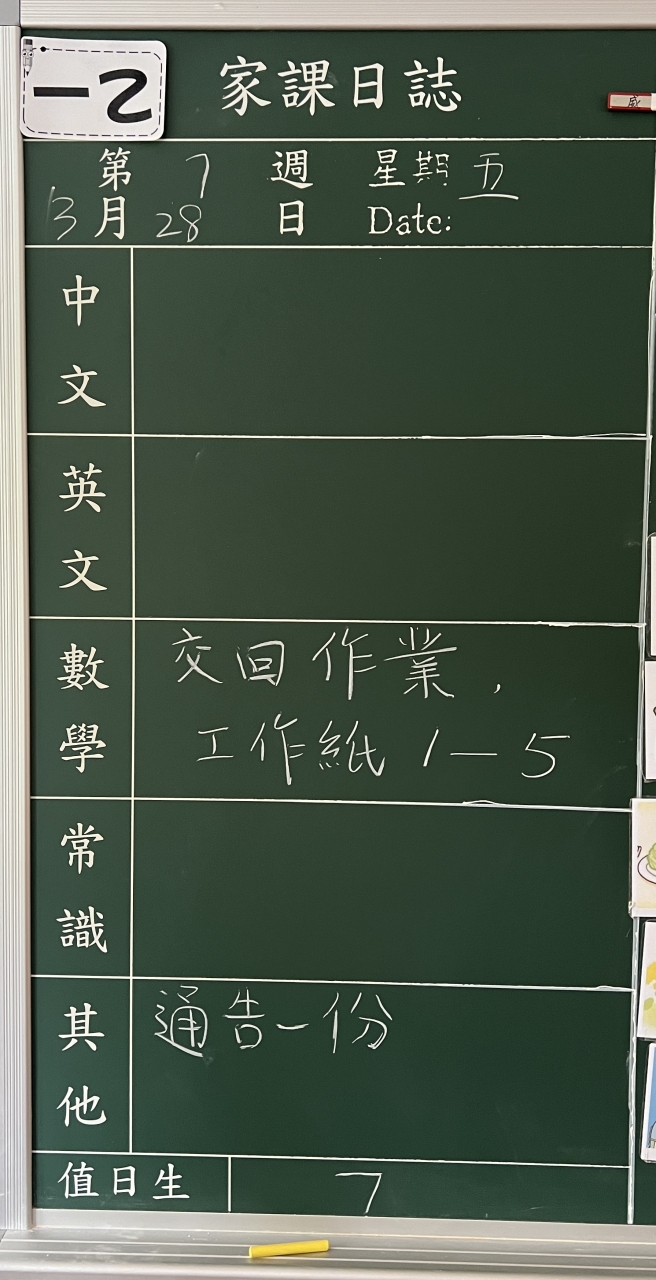 一乙
家課日誌
第 7 週 星期 五
3 月 28 日 Date:
中文
英文
數學 交回作業,
工作紙 1—5
常識
其他 通告一份
值日生 7